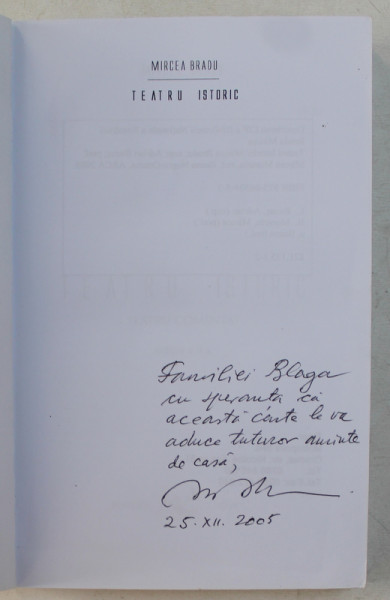 MIRCEA BRADU
TEATRU ISTORIC
Familiei Blaga
cu speranta că
această carte le va
aduce tuturor aminte
de casă,
25.XII.2005